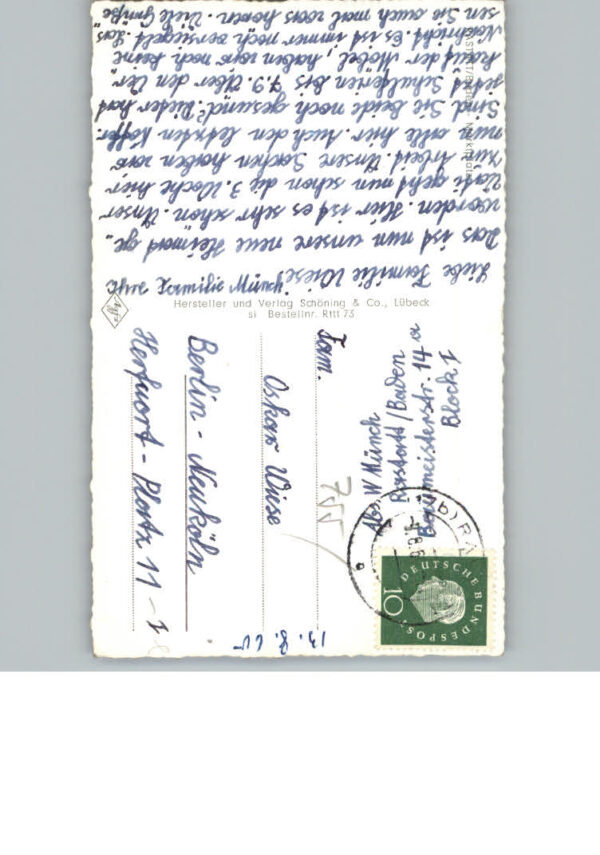 Liebe Familie Wiese!
Das ist nun unsere neue Heimat ge-
worden. Hier ist es sehr schön. Unser
Vati geht nun schon die 3. Woche hier
zur Arbeit. Unsere Sachen haben wir
nun alle hier. Auch den letzten Koffer.
Sind Sie beide noch gesund? Dieter hat
jetzt Schulferien bis 7.9. Über den Ver-
kauf der Möbel, haben wir noch keine
Nachricht. Es ist immer noch versiegelt. Las-
sen Sie auch mal was hören. Viele Grüße
Ihre Familie Münch
Hersteller und Verlag Schöning & Co., Lübeck
Bestellnr. 73
Abs. W Münch
Rastatt/Baden
Baumeisterstr. 14 a
Block I
DEUTSCHE BUNDESPOST
10
13. 8. 60
755
Fam.
Oskar Wiese
Berlin-Neuköln
Herfurt-Platz 11